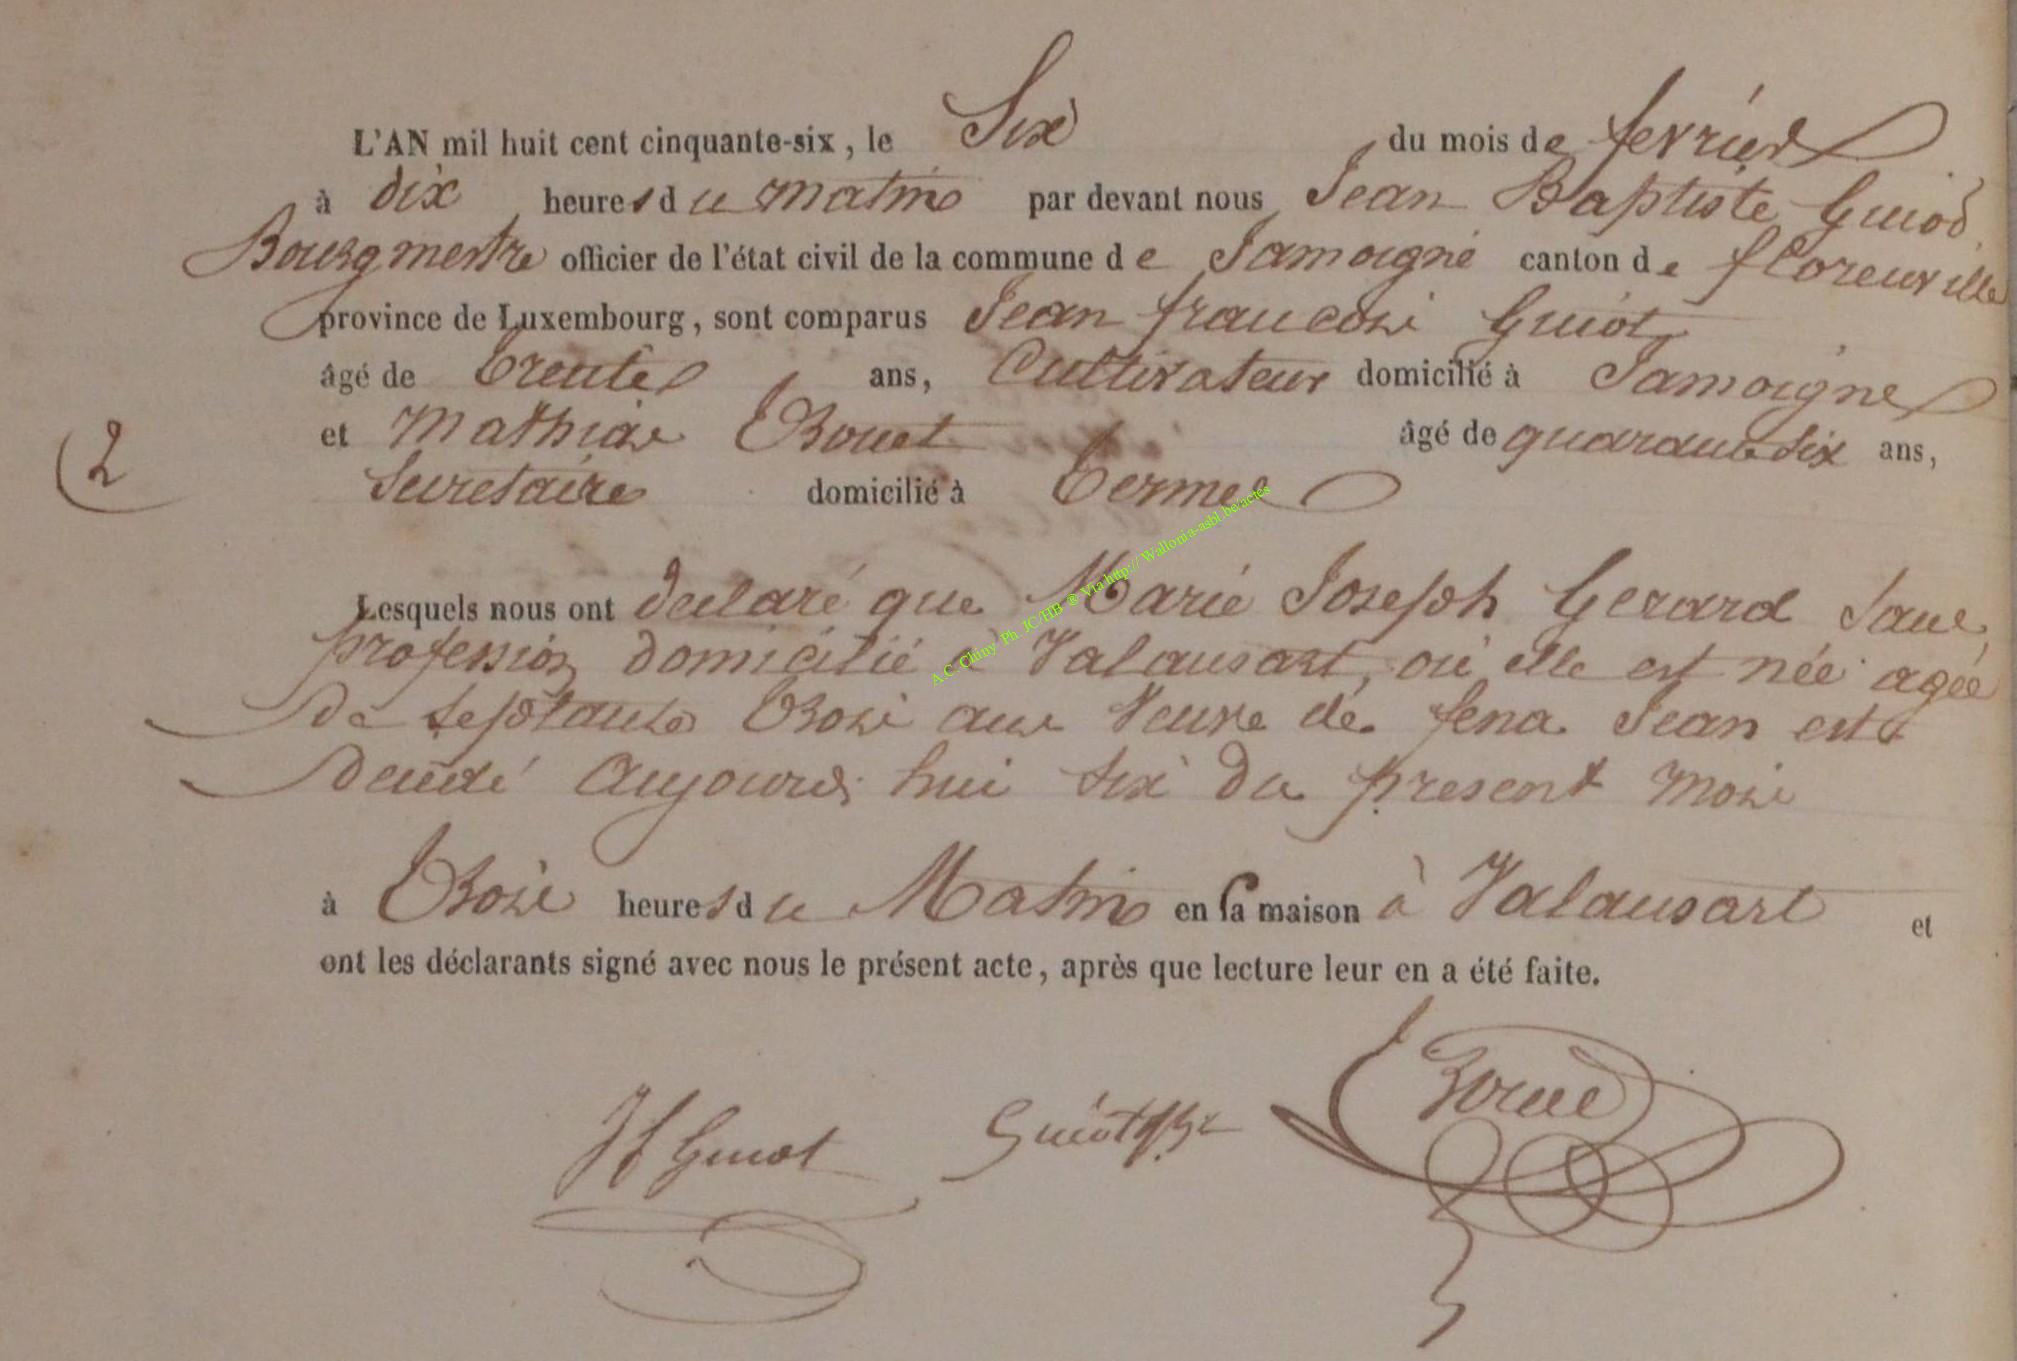 L'AN mil huit cent cinquante-six, le Six du mois de fevrier
à dix heures du matin par devant nous Jean Baptiste Guiot
Bourgmestre officier de l'état civil de la commune de Jamoigne canton de florenville
province de Luxembourg, sont comparus Jean francois Guiot
âgé de trente ans, Cultivateur domicilié à Jamoigne
et Mathias âgé de quarante six ans,
2
Secretaire domicilié à termes
Lesquels nous ont declaré que Marie Joseph Gerard Sans
profession domicilié à Valansart, où elle est née agée
De septante trois ans Veuve de Jean est
decedé aujourd'hui six du present mois
à trois heures du Matin en sa maison à Valansart et
ont les déclarants signé avec nous le présent acte, après que lecture leur en a été faite.
JfGuiot Guiot
A.C Chiny Ph JC/HB ® Via http:// Wallonia-asbl.be/actes